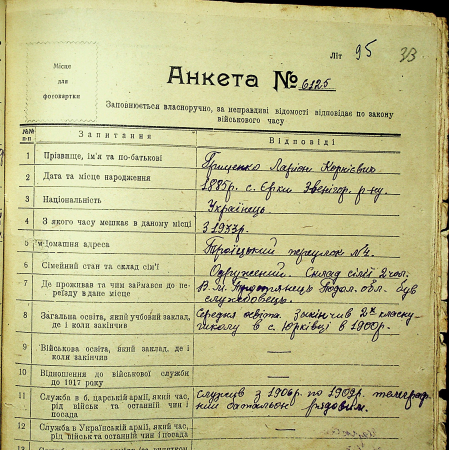 Літ 95 33
Місце
для
фотокартки
Анкета № 6125
Заповнюється власноручно, за неправдиві відомості відповідає по закону
військового часу
№№ п-п Запитання Відповіді
1 Прізвище, ім'я та по-батькові Гриценко Ларіон
2 Дата та місце народження 1885р. с. Єрки Звенігор. р-ну.
3 Національність Українець.
4 З якого часу мешкає в даному місці З 1937р.
5 Домашня адреса Троїцький переулок №4.
6 Сімейний стан та склад сім'ї Одружений. Склад сімї 2 чол.
7 Де проживав та чим займався до пе-
реїзду в дане місце В м. Тростянець Подол. обл. був
службовець.
8 Загальна освіта, який учбовий заклад,
де і коли закінчив Середня освіта. Закінчив 2х класну
школу в с. Юрківці в 1900р.
9 Військова освіта, який заклад, де і
коли закінчив —
10 Відношення до військової служби
до 1917 року —
11 Служба в б. царській армії, який час,
рід військ та останній чин і
посада Служив з 1906р. по 1909р. телеграф-
ний батальон рядовим.
12 Служба в Українській армії, який час,
рід військ та останній чин і посада —
13